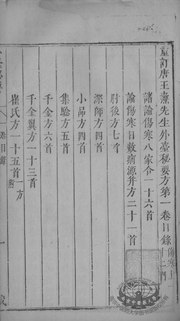 重訂唐王燾先生外臺秘要方第一卷目錄
諸論傷寒八家合一十六首
論傷寒日數病源并方二十一首
肘後方七首
深師方四首
小品方四首
集驗方五首
千金方六首
千金翼方一十三首
崔氏方一十五首